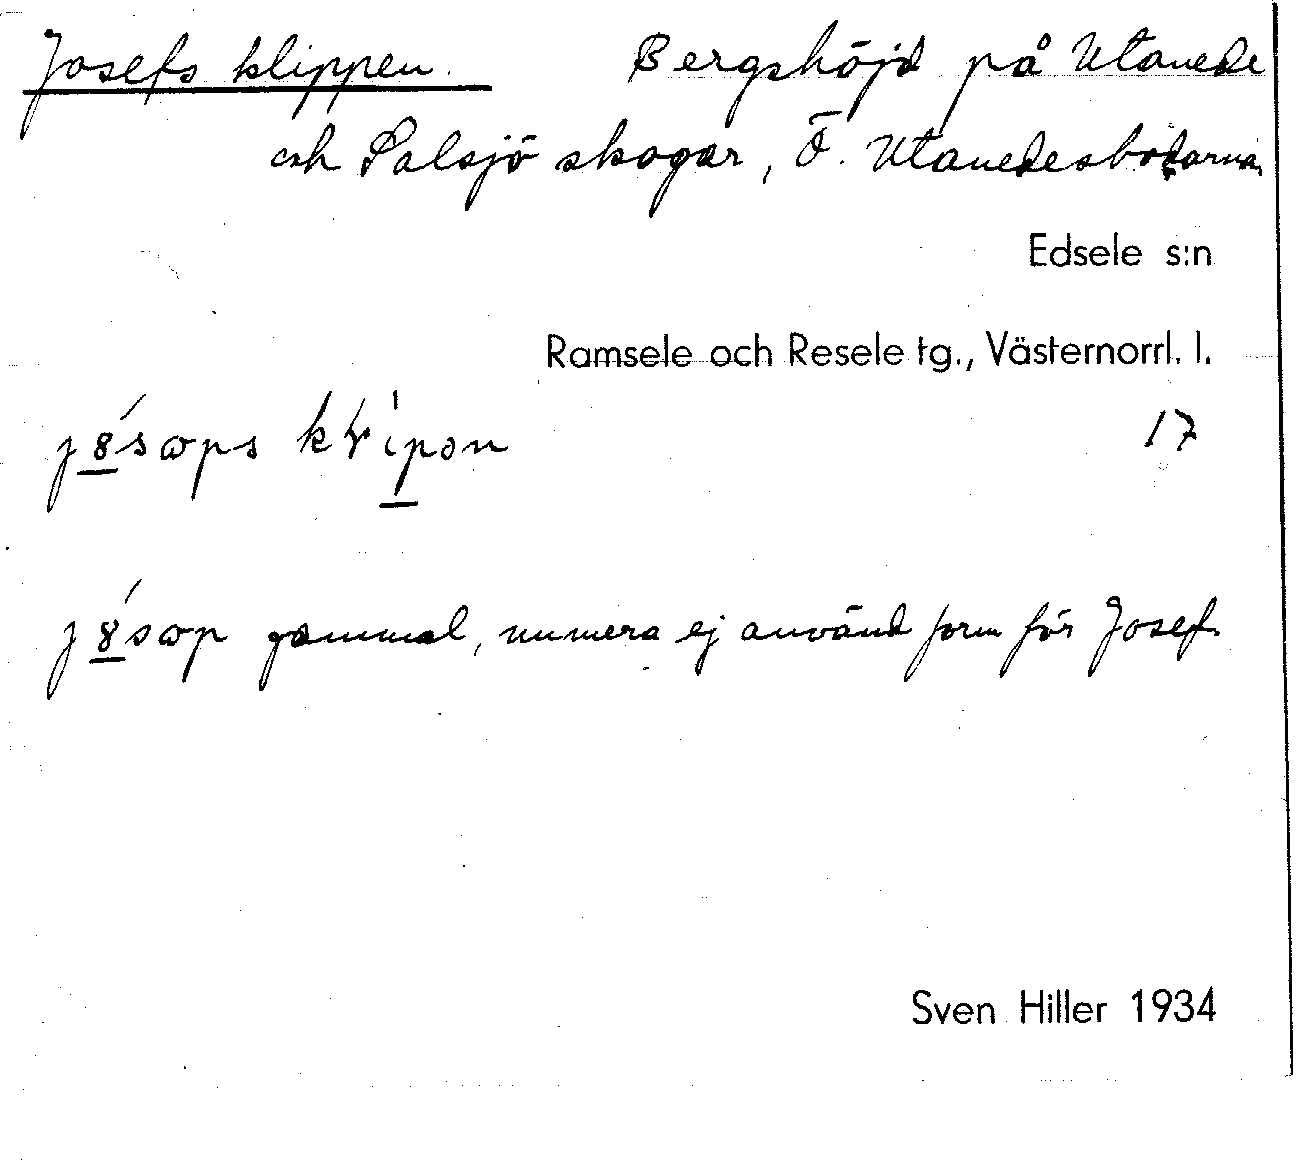 Josefs klippen. Bergshöjd på Utanede
och Salsjö skogar, Ö. Utanedesbodarna.
Edsele s:n
Ramsele och Resele tg., Västernorrl. l.
17
gammal, numera ej använd form för Josef.
Sven Hiller 1934